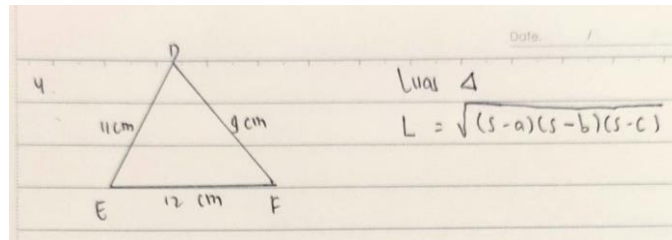 Date. /
4
D
11 cm
9 cm
E
12 cm
F
Luas Δ
L = √(s-a)(s-b)(s-c)